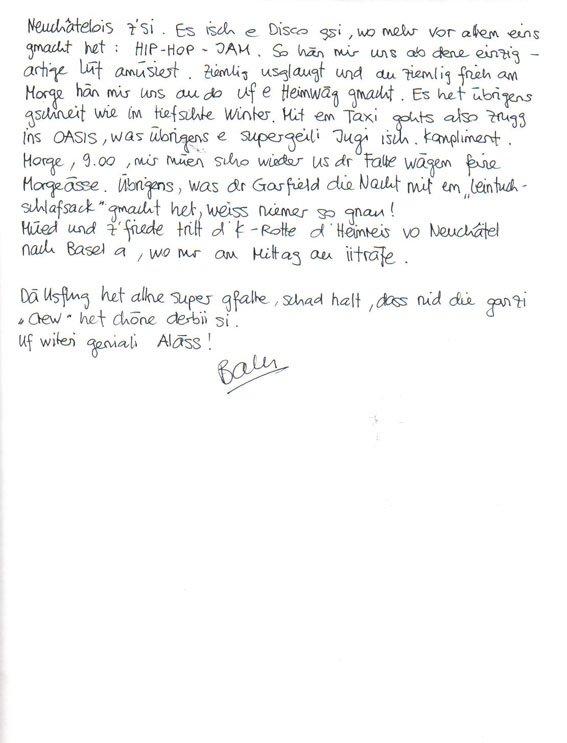 Neuchâtelois z'si. Es isch e Disco gsi, wo mehr vor allem eins
gmacht het: HIP-HOP-JAM. So hän mir uns ab dene einzig-
artige Lüt amüsiest. Ziemlig usglaugt und au ziemlig frieh am
Morge hän mir uns au do uf e Heimwäg gmacht. Es het übrigens
gschneit wie im tiefschte Winter. Mit em Taxi gohts also zrugg
ins OASIS, was übrigens e supergeili Jugi isch. Kompliment.
Morge, 9.00, mir müen scho wieder us dr Falle wägem feine
Morgeässe. Übrigens, was dr Garfield die Nacht mit em „Leintuch-
schlafsack" gmacht het, weiss niemer so gnau!
Müed und z'friede tritt d'K-Rotte d'Heimreis vo Neuchâtel
nach Basel a, wo mr am Mittag au iiträfe.
Dä Usflug het allne super gfalle, schad halt, dass nid die ganzi
„Crew" het chöne derbii si.
Uf witeri geniali Aläss!